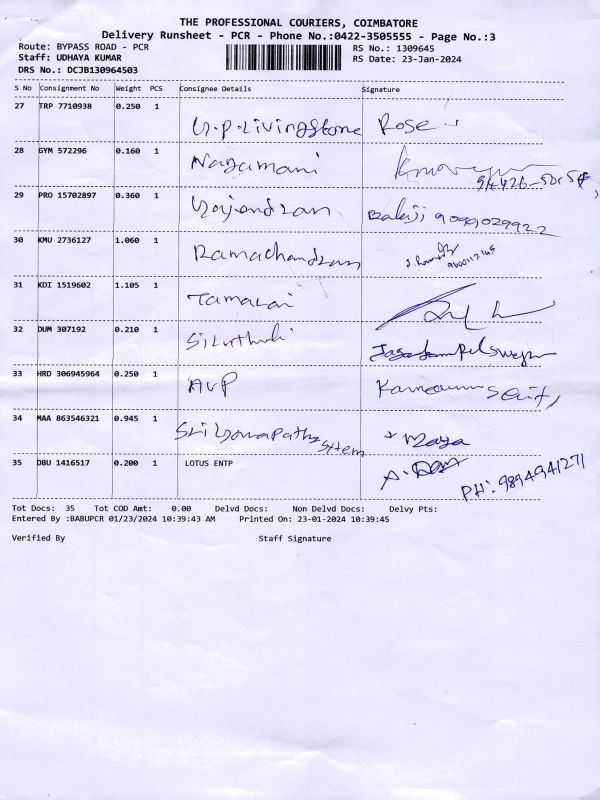 THE PROFESSIONAL COURIERS, COIMBATORE
Delivery Runsheet - PCR - Phone No.:0422-3505555 - Page No.:3
Route: BYPASS ROAD - PCR RS No.: 1309645
Staff: UDHAYA KUMAR RS Date: 23-Jan-2024
DRS No.: DCJB130964503
S No Consignment No Weight PCS Consignee Details Signature
27 TRP 7710938 0.250 1
G.P.Livingstone Rose
28 GYM 572296 0.160 1
Nagamani
29 PRO 15702897 0.360 1
Gajendran Balaji 9099029922
30 KMU 2736127 1.060 1
Ramachandran
31 KDI 1519602 1.105 1
Tamarai
32 DUM 307192 0.210 1
Siruthuli
33 HRD 306945964 0.250 1
AVP
34 MAA 863546321 0.945 1
Sri Ganapathy System Maya
35 DBU 1416517 0.200 1 LOTUS ENTP
PH: 9894941271
Tot Docs: 35 Tot COD Amt: 0.00 Delvd Docs: Non Delvd Docs: Delvy Pts:
Entered By :BABUPCR 01/23/2024 10:39:43 AM Printed On: 23-01-2024 10:39:45
Verified By Staff Signature